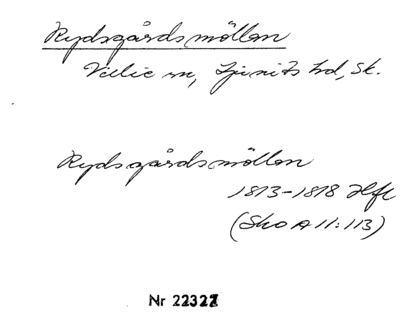 Rydsgårdsmöllan
Villie sn, Ljunits hd, Sk.
Rydsgårdsmöllan
1813-1818 Hfl
(Sko A II:113)
Nr 22327